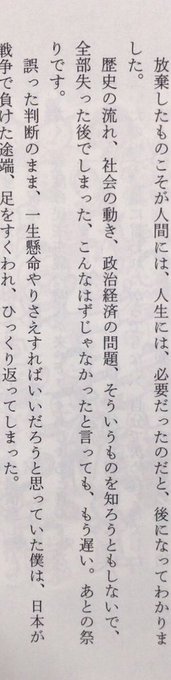 放棄したものこそが人間には、人生には、必要だったのだと、後になってわかりま
した。
歴史の流れ、社会の動き、政治経済の問題、そういうものを知ろうともしないで、
全部失った後でしまった、こんなはずじゃなかったと言っても、もう遅い。あとの祭
りです。
誤った判断のまま、一生懸命やりさえすればいいだろうと思っていた僕は、日本が
戦争で負けた途端、足をすくわれ、ひっくり返ってしまった。